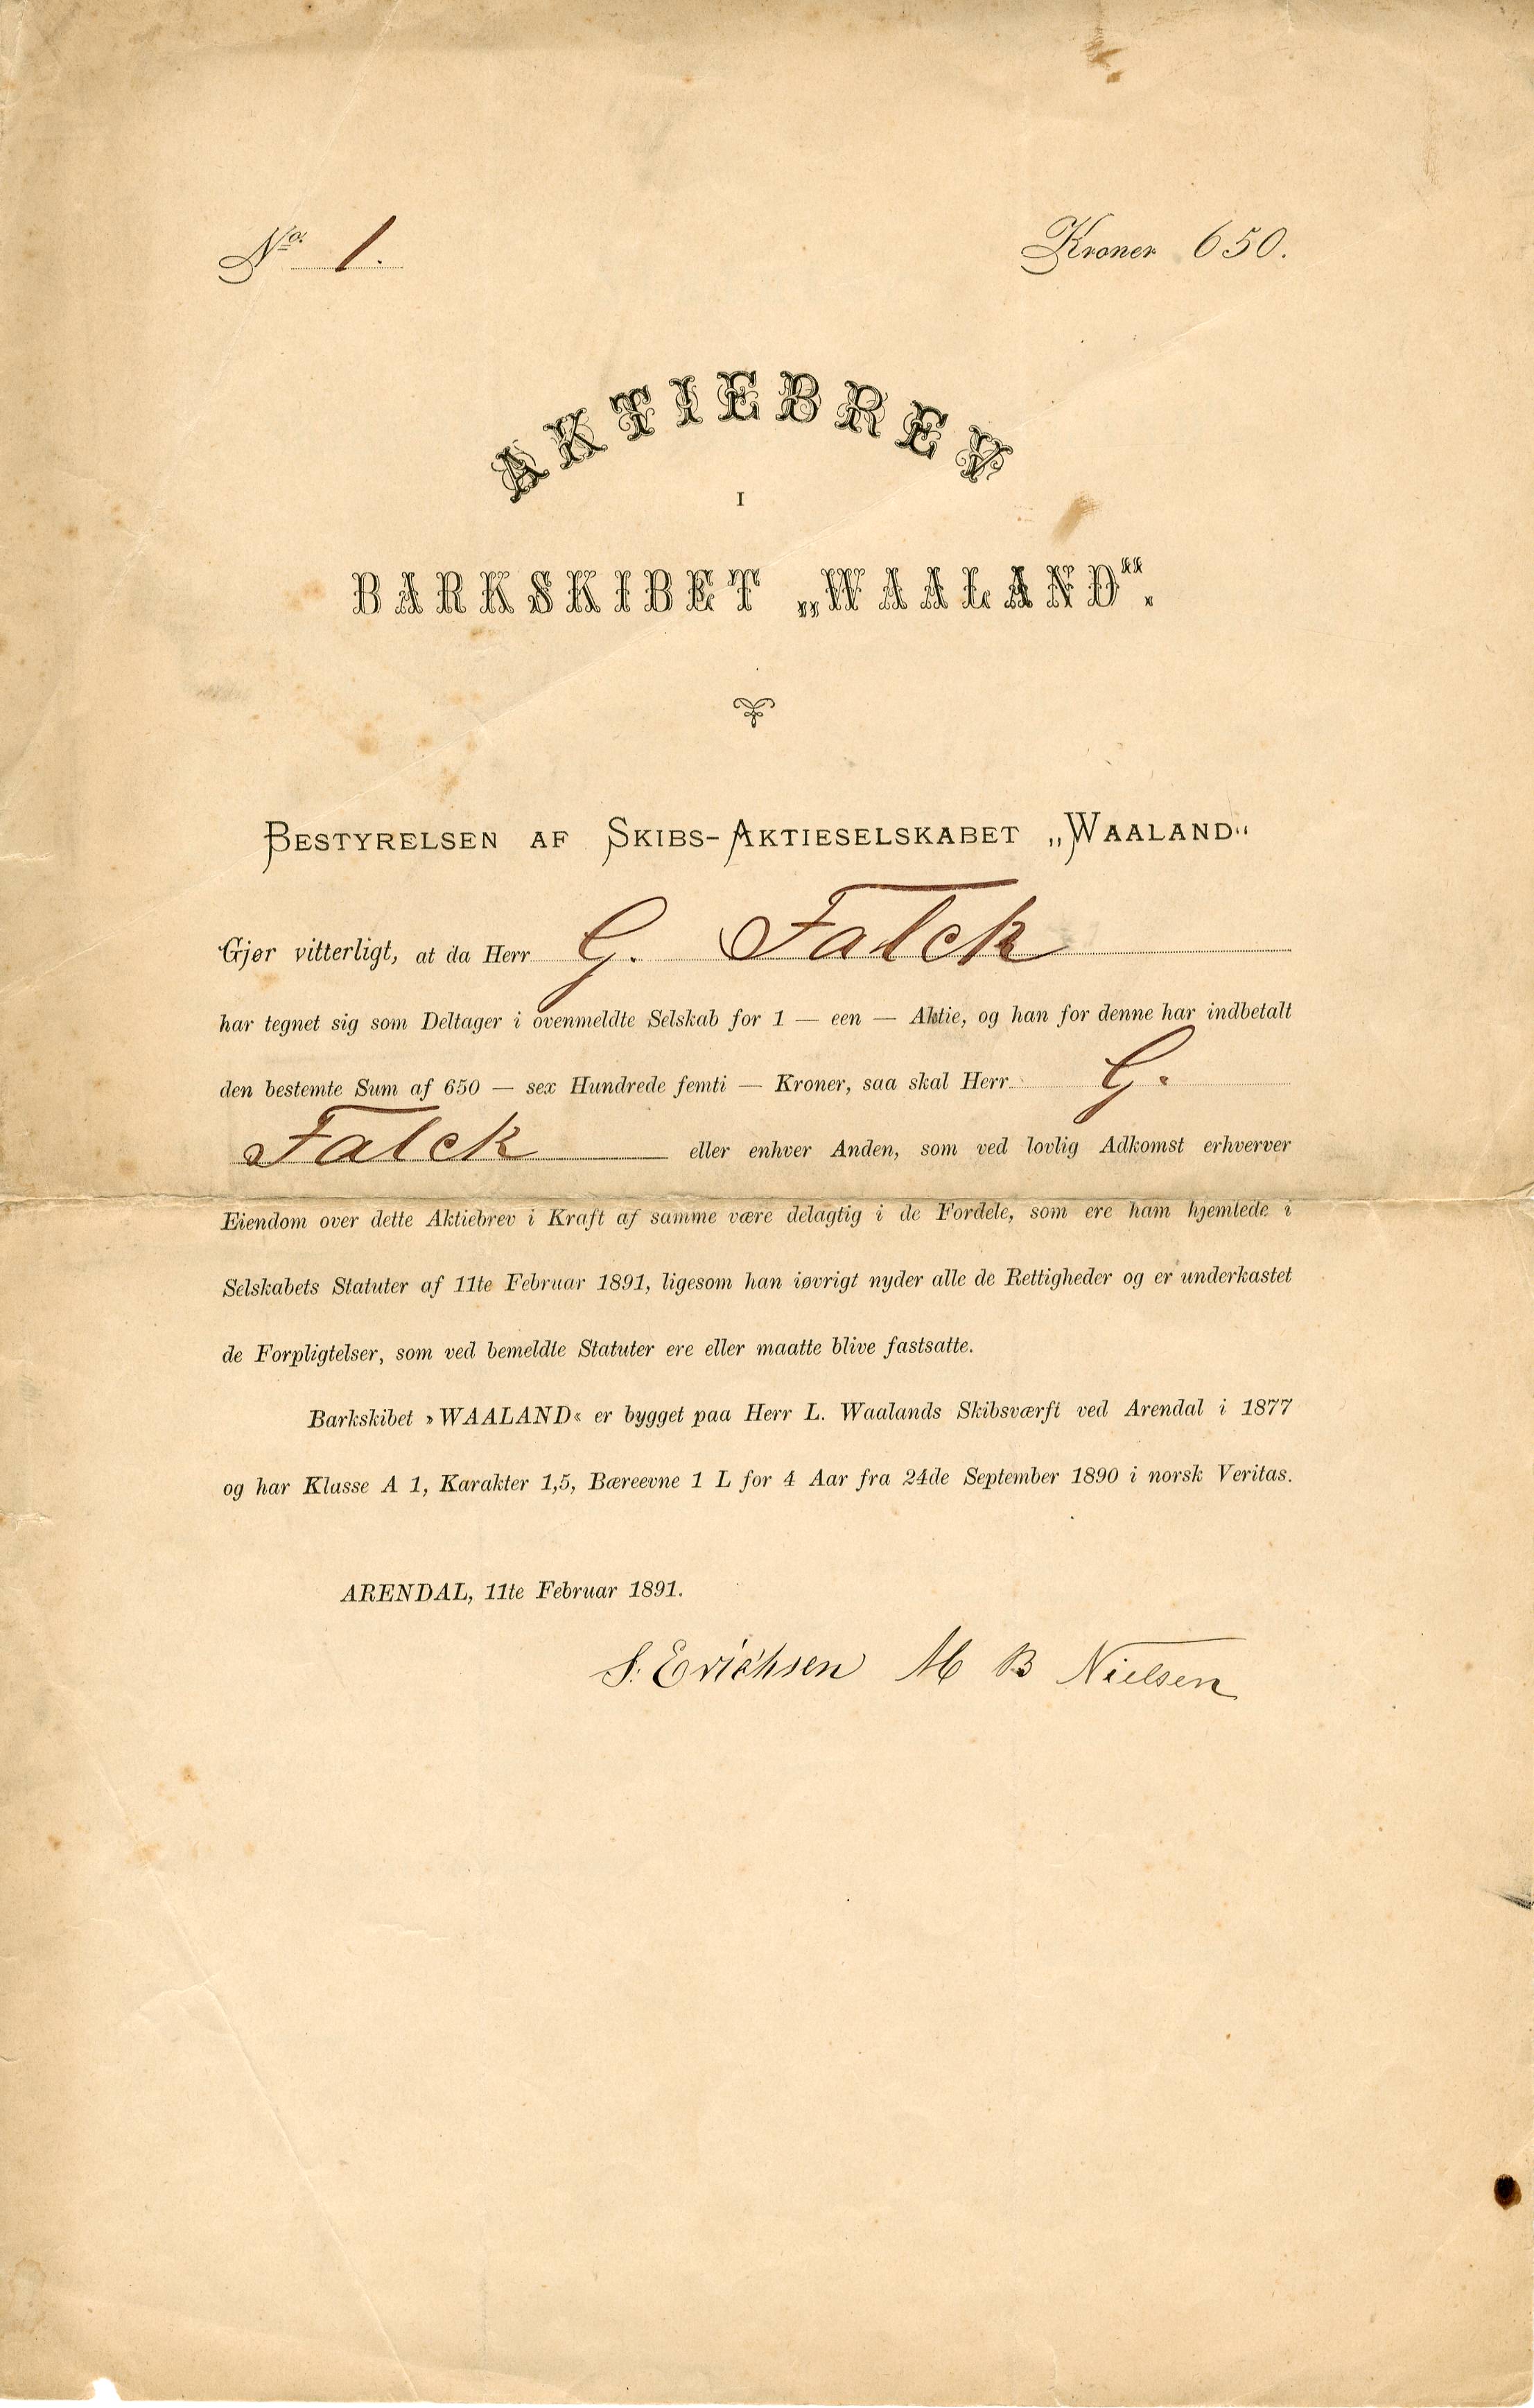 No. 1. Kroner 650.
AKTIEBREV
I
BARKSKIBET „WAALAND“.
BESTYRELSEN AF SKIBS-AKTIESELSKABET „WAALAND“
Gjør vitterligt, at da Herr G. Falck
har tegnet sig som Deltager i ovenmeldte Selskab for 1 — een — Aktie, og han for denne har indbetalt
den bestemte Sum af 650 — sex Hundrede femti — Kroner, saa skal Herr G.
Falck eller enhver Anden, som ved lovlig Adkomst erhverver
Eiendom over dette Aktiebrev i Kraft af samme være delagtig i de Fordele, som ere ham hjemlede i
Selskabets Statuter af 11te Februar 1891, ligesom han iøvrigt nyder alle de Rettigheder og er underkastet
de Forpligtelser, som ved bemeldte Statuter ere eller maatte blive fastsatte.
Barkskibet »WAALAND« er bygget paa Herr L. Waalands Skibsværft ved Arendal i 1877
og har Klasse A 1, Karakter 1,5, Bæreevne 1 L for 4 Aar fra 24de September 1890 i norsk Veritas.
ARENDAL, 11te Februar 1891.
S. Erichsen M B Nielsen